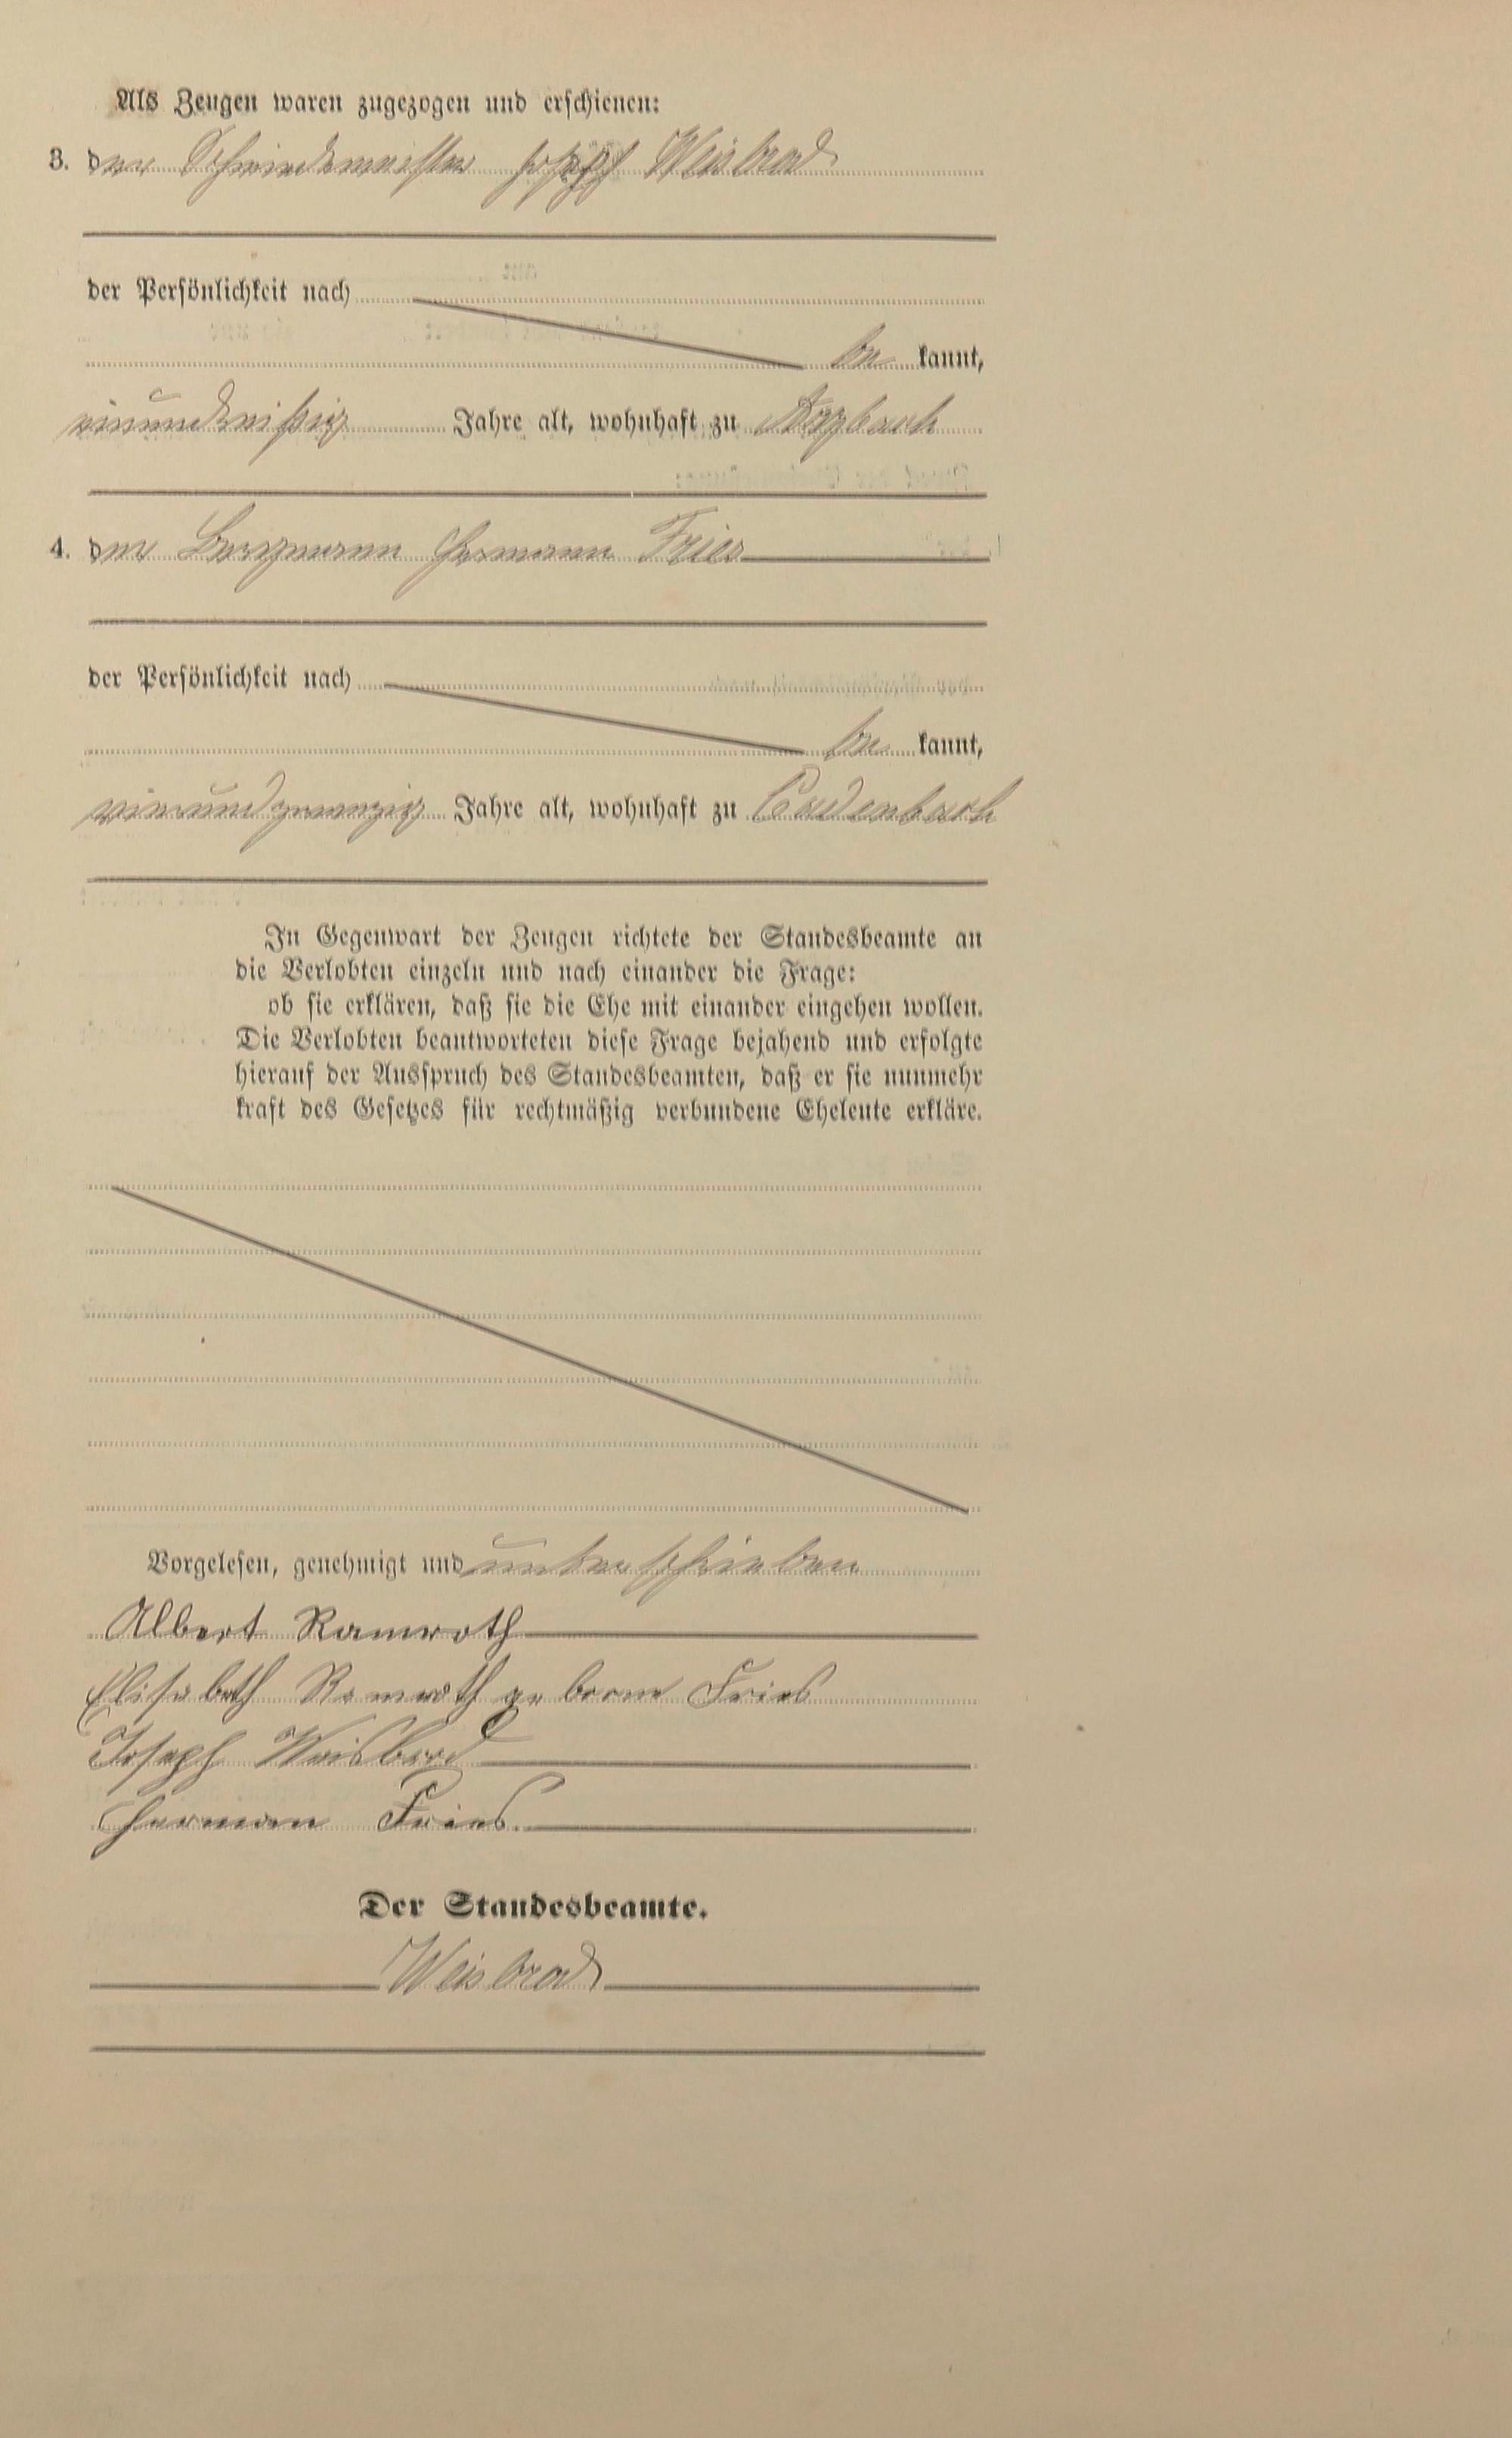 Als Zeugen waren zugezogen und erschienen:
3. der Schmiedemeister Joseph Weisbrod
der Persönlichkeit nach
be kannt,
einunddreißig Jahre alt, wohnhaft zu
4. der Bergmann Hermann Fries
der Persönlichkeit nach
be kannt,
vierundzwanzig Jahre alt, wohnhaft zu Caudenbach
In Gegenwart der Zeugen richtete der Standesbeamte an
die Verlobten einzeln und nach einander die Frage:
ob sie erklären, daß sie die Ehe mit einander eingehen wollen.
Die Verlobten beantworteten diese Frage bejahend und erfolgte
hierauf der Ausspruch des Standesbeamten, daß er sie nunmehr
kraft des Gesetzes für rechtmäßig verbundene Eheleute erkläre.
Vorgelesen, genehmigt und unterschrieben
Albert Ramroth
Elisabeth Ramroth geborne Fries
Joseph Weisbrod
Herman Fries.
Der Standesbeamte.
Weisbrod